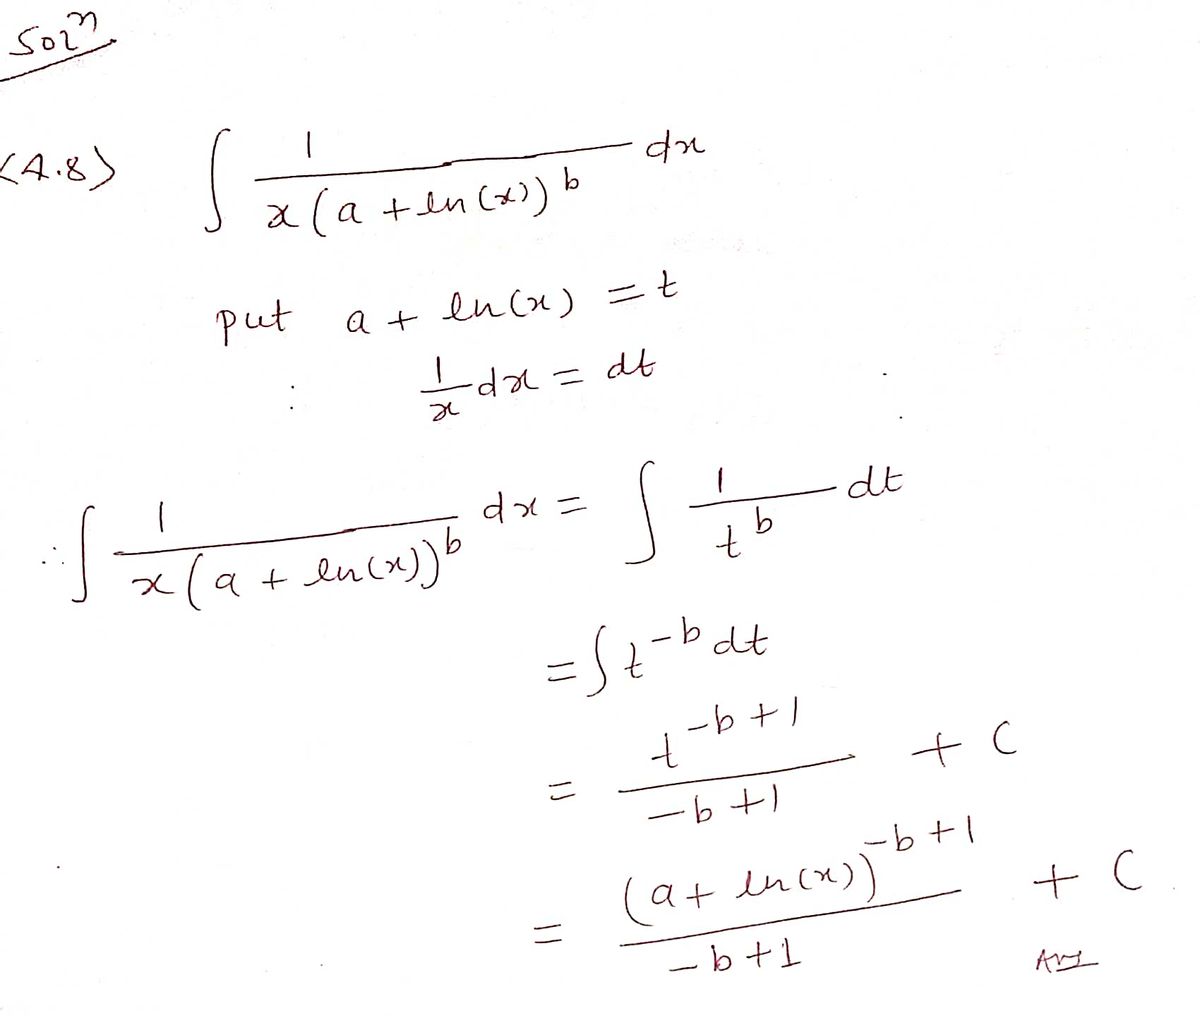 Solⁿ
(A.8) ∫ 1/(x(a + ln(x))^b) dx
put a + ln(x) = t
: 1/x dx = dt
∴ ∫ 1/(x(a + ln(x))^b) dx = ∫ 1/t^b dt
= ∫ t^(-b) dt
= t^(-b+1)/(-b+1) + C
= (a + ln(x))^(-b+1)/(-b+1) + C
Ans